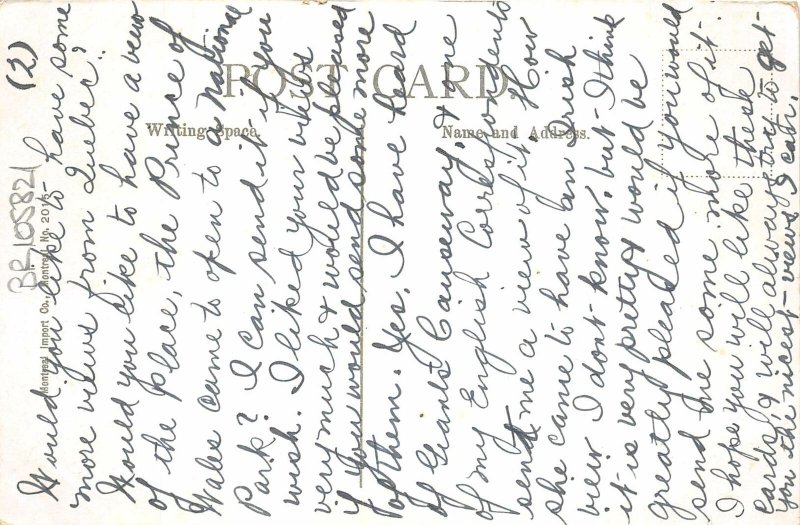 (2)
Would you like to have some
more views from Quebec?
Would you like to have a view
of the place, the Prince of
Wales came to open to a national
Park? I can send it if you
wish. I liked your views
very much & would be pleased
if you would send some more
of them. Yes, I have heard
of Giants Causeway, & one
of my English Correspondents
sent me a view of it. How
she came to have an Irish
view I dont know, but I think
it is very pretty & would be
greatly pleased if you would
send me some more of it.
I hope you will like these
cards, & will always try to get
you the nicest views I can.
POST CARD
Writing Space.
Name and Address.
Montreal Import Co., Montreal, No. 2015
BR105821